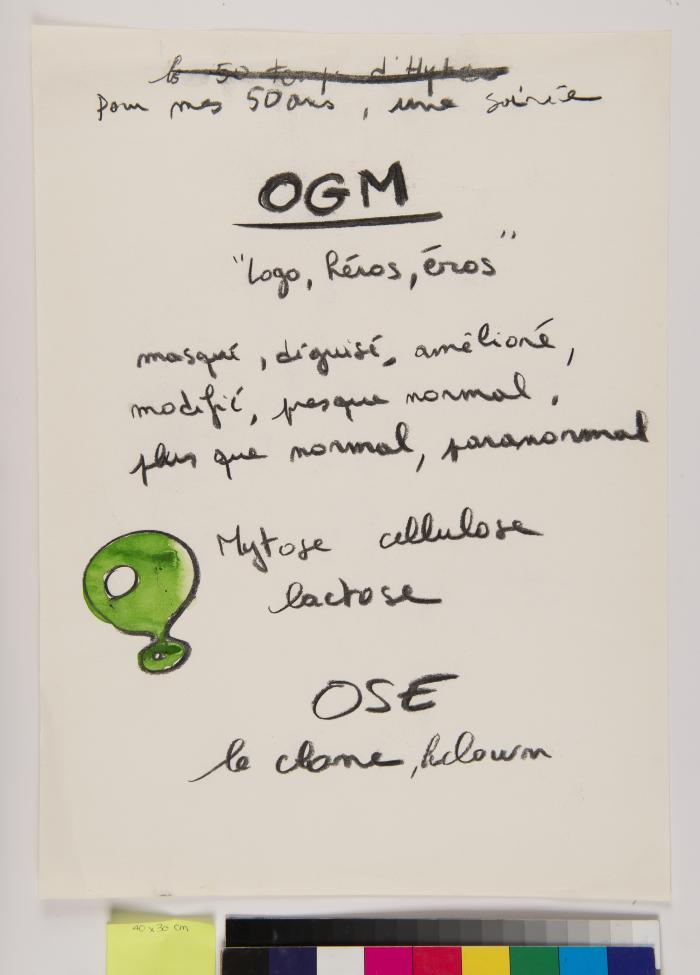 le 50
Pour mes 50 ans, une soirée
OGM
"Logo, héros, éros"
masqué, déguisé, amélioré,
modifié, presque normal,
plus que normal, paranormal
Mytose cellulose
lactose
OSE
le clone, le clown
40 x 30 cm